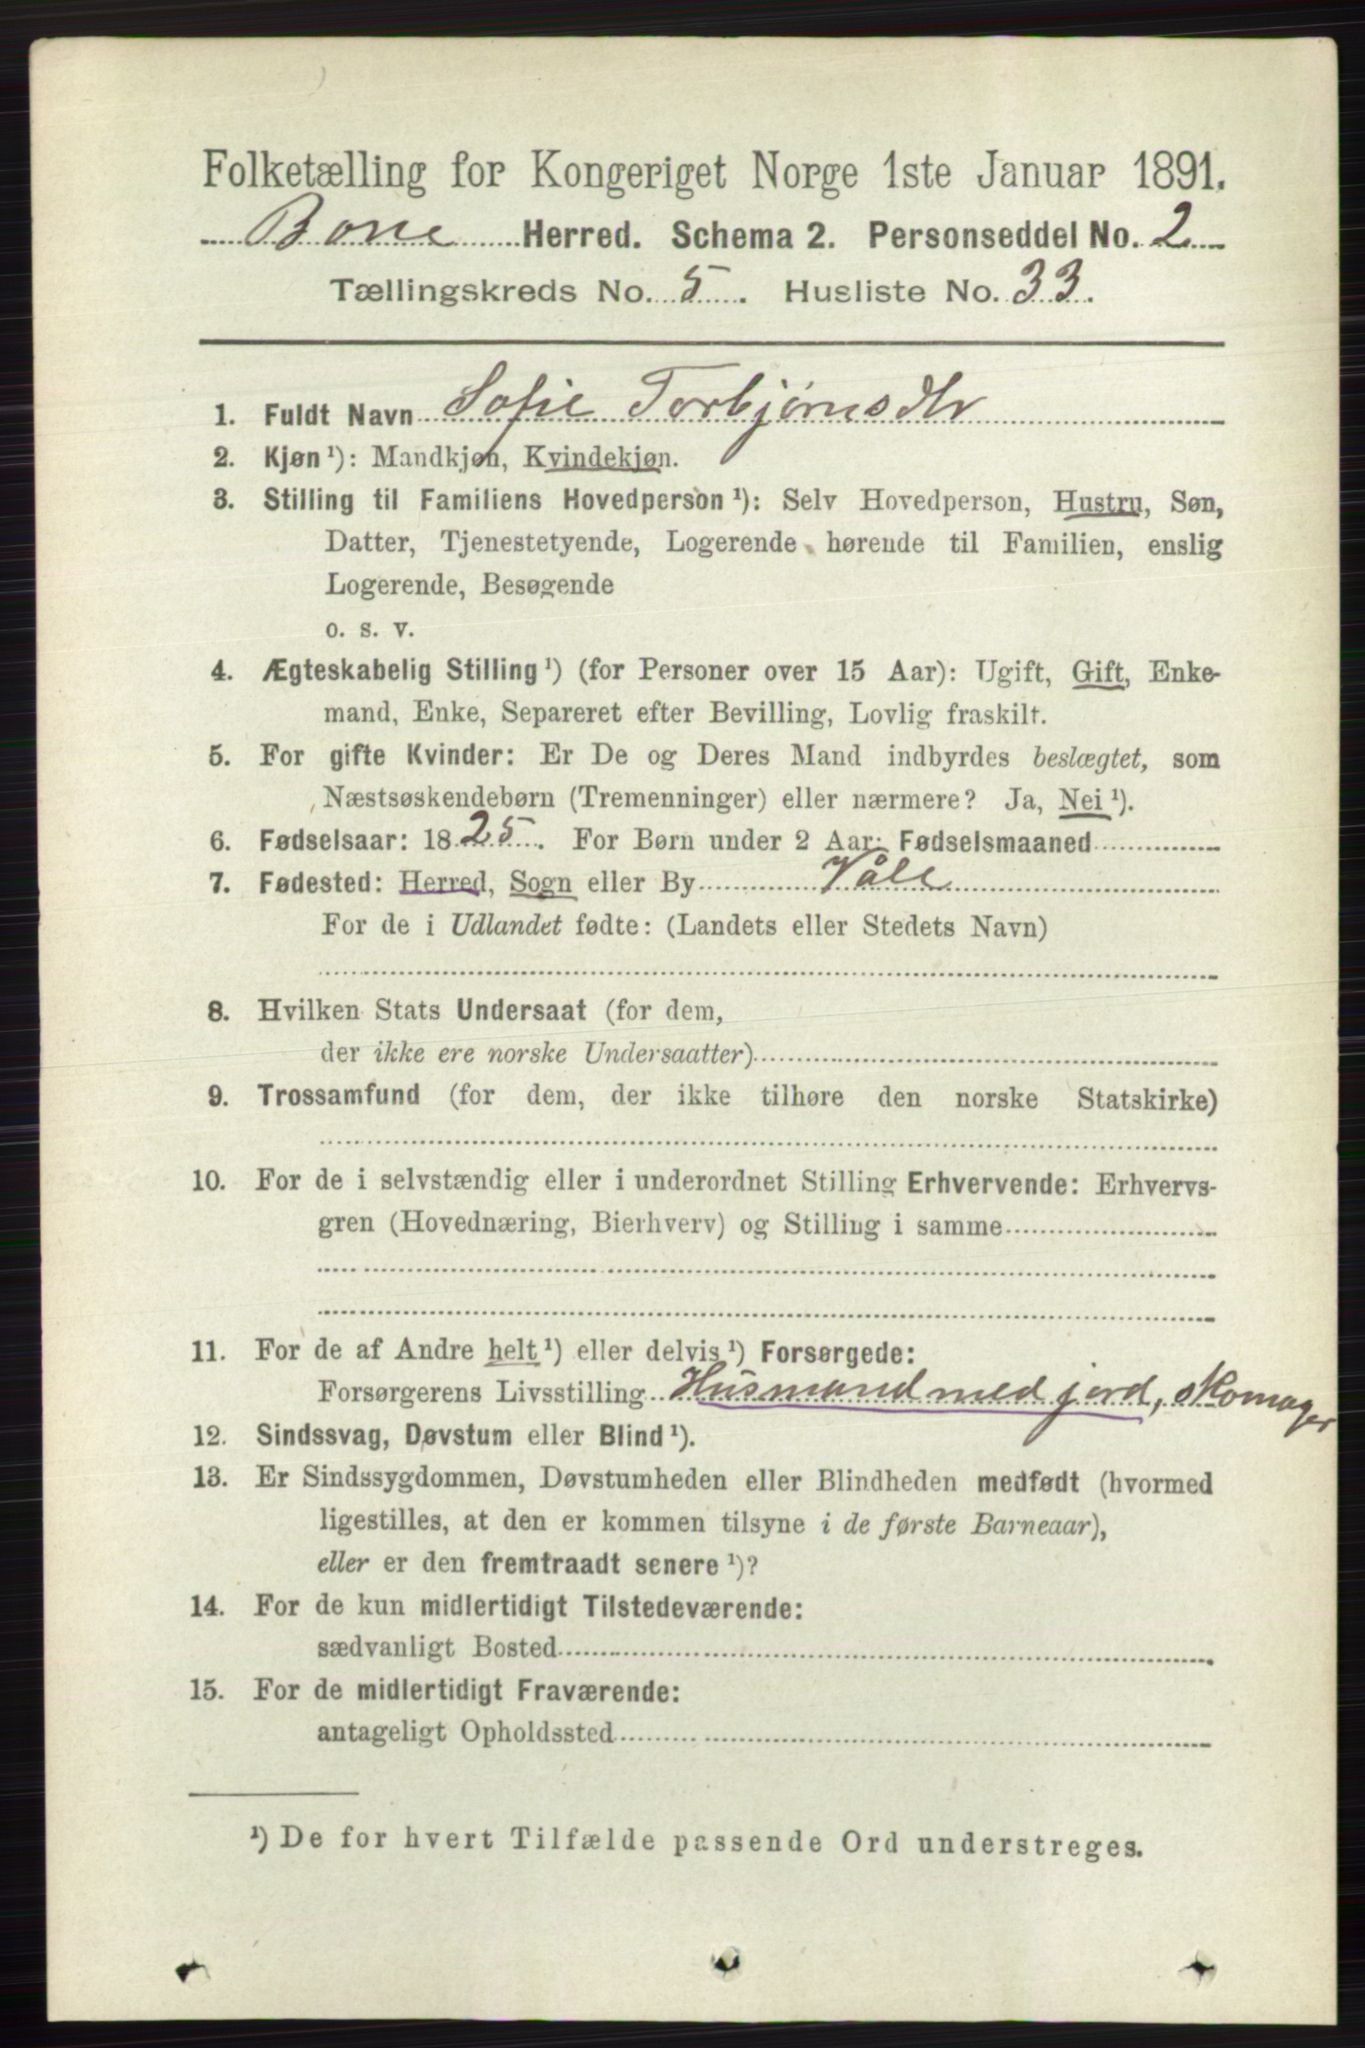 Folketælling for Kongeriget Norge 1ste Januar 1891.
Borre Herred. Schema 2. Personseddel No. 2
Tællingskreds No. 5. Husliste No. 33.
1. Fuldt Navn Sofie Torbjørnsdtr
2. Kjøn ¹): Mandkjøn, Kvindekjøn.
3. Stilling til Familiens Hovedperson ¹): Selv Hovedperson, Hustru, Søn,
Datter, Tjenestetyende, Logerende hørende til Familien, enslig
Logerende, Besøgende
o. s. v.
4. Ægteskabelig Stilling ¹) (for Personer over 15 Aar): Ugift, Gift, Enke-
mand, Enke, Separeret efter Bevilling, Lovlig fraskilt.
5. For gifte Kvinder: Er De og Deres Mand indbyrdes beslægtet, som
Næstsøskendebørn (Tremenninger) eller nærmere? Ja, Nei ¹).
6. Fødselsaar: 1825. For Børn under 2 Aar: Fødselsmaaned
7. Fødested: Herred, Sogn eller By Våle
For de i Udlandet fødte: (Landets eller Stedets Navn)
8. Hvilken Stats Undersaat (for dem,
der ikke ere norske Undersaatter)
9. Trossamfund (for dem, der ikke tilhøre den norske Statskirke)
10. For de i selvstændig eller i underordnet Stilling Erhvervende: Erhvervs-
gren (Hovednæring, Bierhverv) og Stilling i samme
11. For de af Andre helt ¹) eller delvis ¹) Forsørgede:
Forsørgerens Livsstilling Husmand med jord, skomager
12. Sindssvag, Døvstum eller Blind ¹).
13. Er Sindssygdommen, Døvstumheden eller Blindheden medfødt (hvormed
ligestilles, at den er kommen tilsyne i de første Barneaar),
eller er den fremtraadt senere ¹)?
14. For de kun midlertidigt Tilstedeværende:
sædvanligt Bosted
15. For de midlertidigt Fraværende:
antageligt Opholdssted
¹) De for hvert Tilfælde passende Ord understreges.